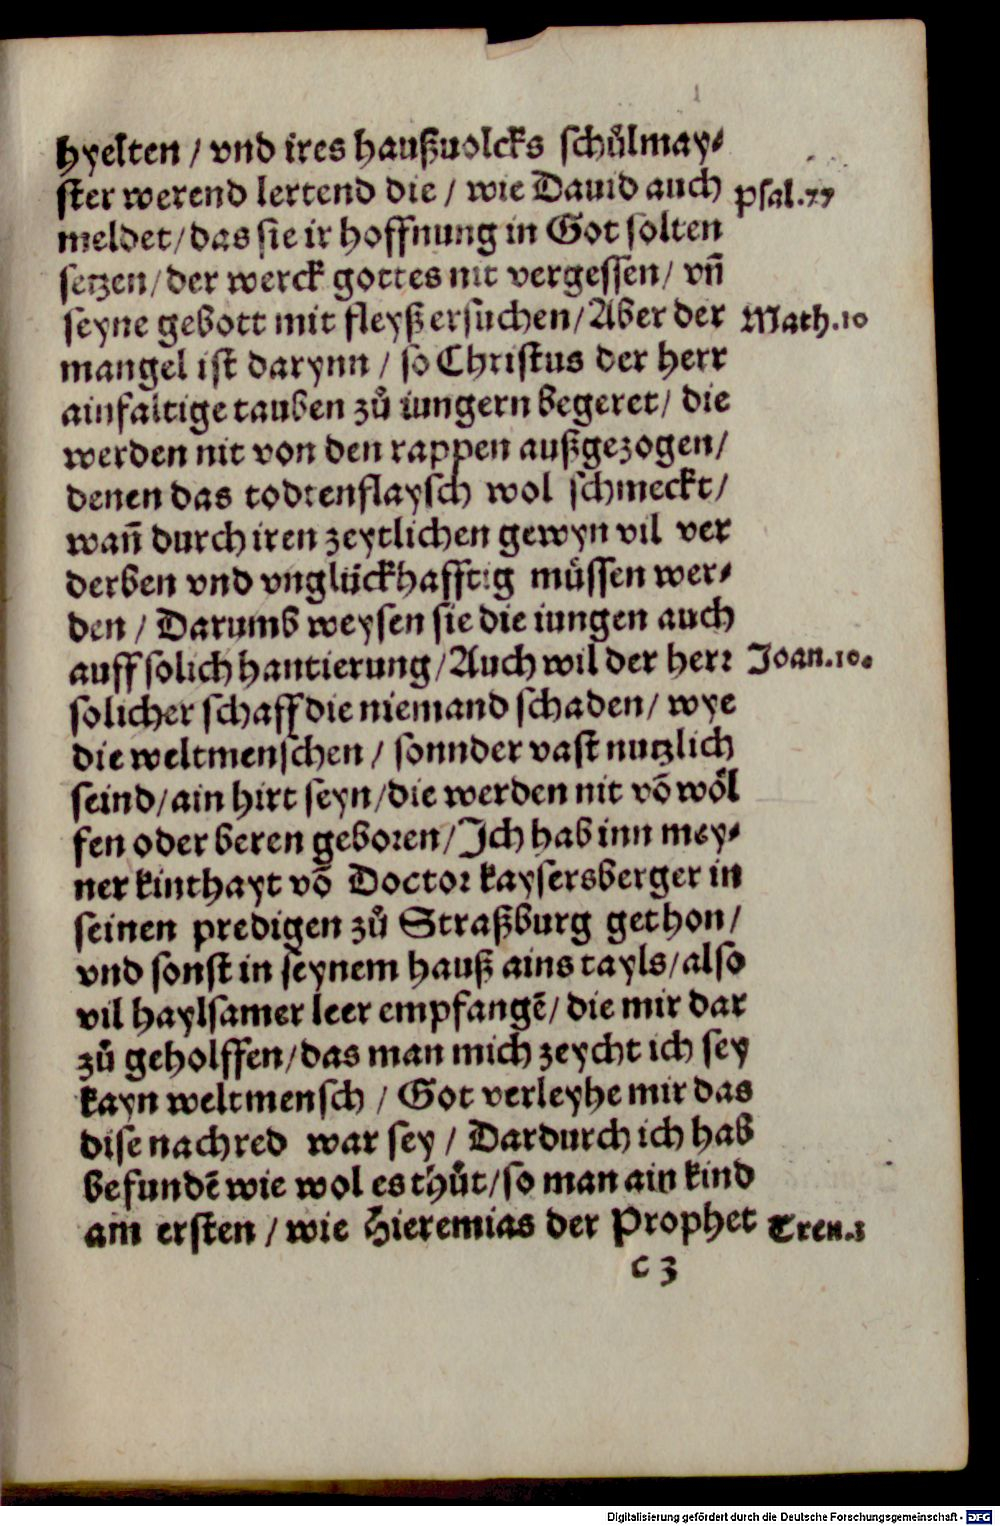 hyelten / vnd ires haußuolcks schůlmay⸗
ster werend lertend die / wie Dauid auch
psal.77
meldet / das sie ir hoffnung in Got solten
setzen / der werck gottes nit vergessen / vñ
seyne gebott mit fleyß ersuchen / Aber der
Math.10
mangel ist darynn / so Christus der herr
ainfaltige tauben zů iungern begeret / die
werden nit von den rappen außgezogen /
denen das todtenflaysch wol schmeckt /
wañ durch iren zeytlichen gewyn vil ver
derben vnd vnglückhafftig müssen wer⸗
den / Darumb weysen sie die iungen auch
auff solich hantierung / Auch wil der herr
Joan.10.
solicher schaff die niemand schaden / wye
die weltmenschen / sonnder vast nutzlich
seind / ain hirt seyn / die werden nit võ wöl
fen oder beren geboren / Ich hab inn mey⸗
ner kinthayt võ Doctor kaysersberger in
seinen predigen zů Straßburg gethon /
vnd sonst in seynem hauß ains tayls / also
vil haylsamer leer empfangẽ / die mir dar
zů geholffen / das man mich zeycht ich sey
kayn weltmensch / Got verleyhe mir das
dise nachred war sey / Dardurch ich hab
befundẽ wie wol es thůt / so man ain kind
am ersten / wie Hieremias der Prophet
Tren.3
c 3
Digitalisierung gefördert durch die Deutsche Forschungsgemeinschaft - DFG